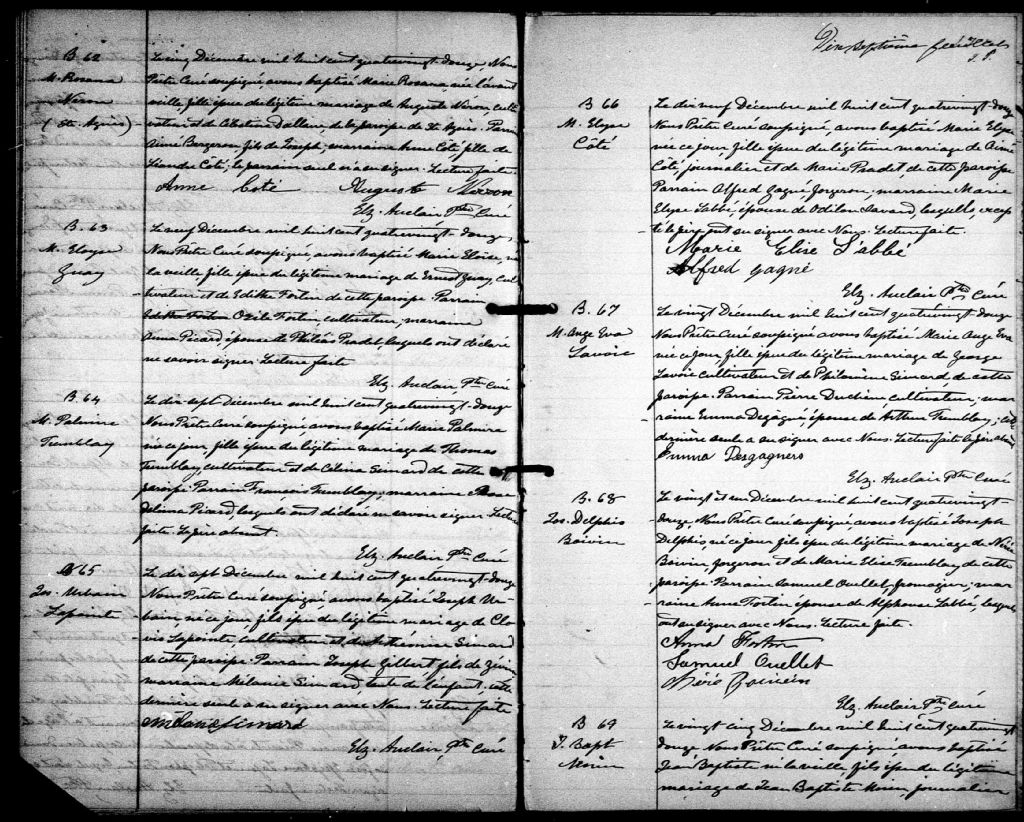 B 62
M. Rosana
Néron
(St. Agnès)
Le cinq Décembre mil huit cent quatrevingt-douze Nous
Prêtre Curé soussigné, avons baptisé Marie Rosana, née l'avant
veille, fille issue du légitime mariage de Auguste Néron, culti-
vateur et de Célestine Dallaire, de la paroisse de St. Agnès. Parrain
Aimé Bergeron, fils de Joseph, marraine Anne Côté fille de
Côté, le parrain seul n'a su signer. Lecture faite
Anne Coté Auguste Nérron
Elz. Auclair Ptre Curé
B. 63
M. Eloyse
Guay
Le neuf Décembre mil huit cent quatrevingt-douze,
Nous Prêtre Curé soussigné, avons baptisé Marie Eloise, née
la veille, fille issue du légitime mariage de Ernest Guay, cul-
tivateur et de Edithe Fortin de cette paroisse. Parrain
Fortin, cultivateur, marraine
Anna Picard, épouse de Philéas Pradet, lesquels ont déclaré
ne savoir signer. Lecture faite
Elz. Auclair, Ptre Curé
B 64
M. Palmire
Tremblay
Le dix-sept Décembre mil huit cent quatrevingt-douze
Nous Prêtre Curé soussigné avons baptisé Marie Palmire
née ce jour, fille issue du légitime mariage de Thomas
Tremblay, cultivateur et de Célina Simard de cette
paroisse. Parrain François Tremblay, marraine
Delima Picard, lesquels ont déclaré ne savoir signer. Lecture
faite. Le père absent.
Elz. Auclair Ptre Curé
B 65
Jos. Urbain
Lapointe
Le dix sept Décembre mil huit cent quatrevingt-douze
Nous Prêtre Curé soussigné, avons baptisé Joseph Ur-
bain, né ce jour, fils issu du légitime mariage de Clo-
vis Lapointe, cultivateur et de Simard
de cette paroisse. Parrain Joseph Gilbert fils de
marraine Mélanie Simard, tante de l'enfant, cette
dernière seule a su signer avec Nous. Lecture faite
Simard
Elz. Auclair, Ptre Curé
Dix septième
B 66
M. Elyse
Côté
Le dix neuf Décembre mil huit cent quatrevingt-douze
Nous Prêtre Curé soussigné, avons baptisé Marie Elyse
née ce jour, fille issue du légitime mariage de Aimé
Côté, journalier et de Marie Pradet de cette paroisse
Parrain Alfred Gagné, forgeron, marraine Marie
Elyse Labbé, épouse de Odilon Savard, lesquels,
te le père ont su signer avec Nous. Lecture faite.
Marie Elise L'abbé
Alfred gagné
Elz. Auclair Ptre Curé
B. 67
M. Ange Eva
Lavoie
Le vingt Décembre mil huit cent quatrevingt-douze
Nous Prêtre Curé soussigné avons baptisé Marie Ange Eva
née ce jour, fille issue du légitime mariage de George
Lavoie cultivateur et de Philomène Simard, de cette
paroisse. Parrain Pierre Duchêne cultivateur, mar-
raine Emma Dégagné, épouse de Arthur Tremblay, cette
dernière seule a su signer avec Nous. Lecture faite le père absent
Emma Desgagners
Elz. Auclair Ptre Curé
B. 68
Jos. Delphis
Boivin
Le vingt et un Décembre mil huit cent quatrevingt-
douze, Nous Prêtre Curé soussigné, avons baptisé Joseph
Delphis, né ce jour, fils issu du légitime mariage de Néré
Boivin, forgeron et de Marie Elise Tremblay, de cette
paroisse. Parrain Samuel Ouellet, fromager, mar-
raine Anna Fortin épouse de Alphonse Labbé, lesquels
ont su signer avec Nous. Lecture faite.
Anna Fortin
Samuel Ouellet
Elz. Auclair Ptre Curé
B 69
J. Bapt
Morin
Le vingt cinq Décembre mil huit cent quatrevingt
douze Nous Prêtre Curé soussigné, avons baptisé
Jean Baptiste né la veille, fils issu du légitime
mariage de Jean Baptiste Morin, journalier